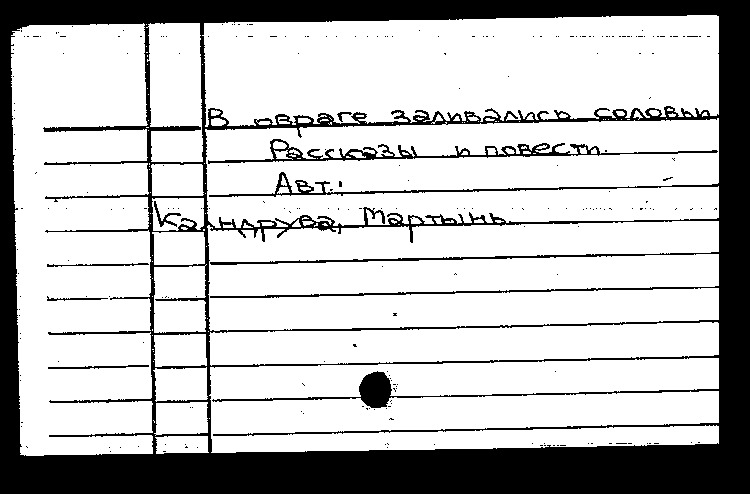 В овраге заливались соловьи
Рассказы и повести.
Авт.:
Калндрува, Мартынь